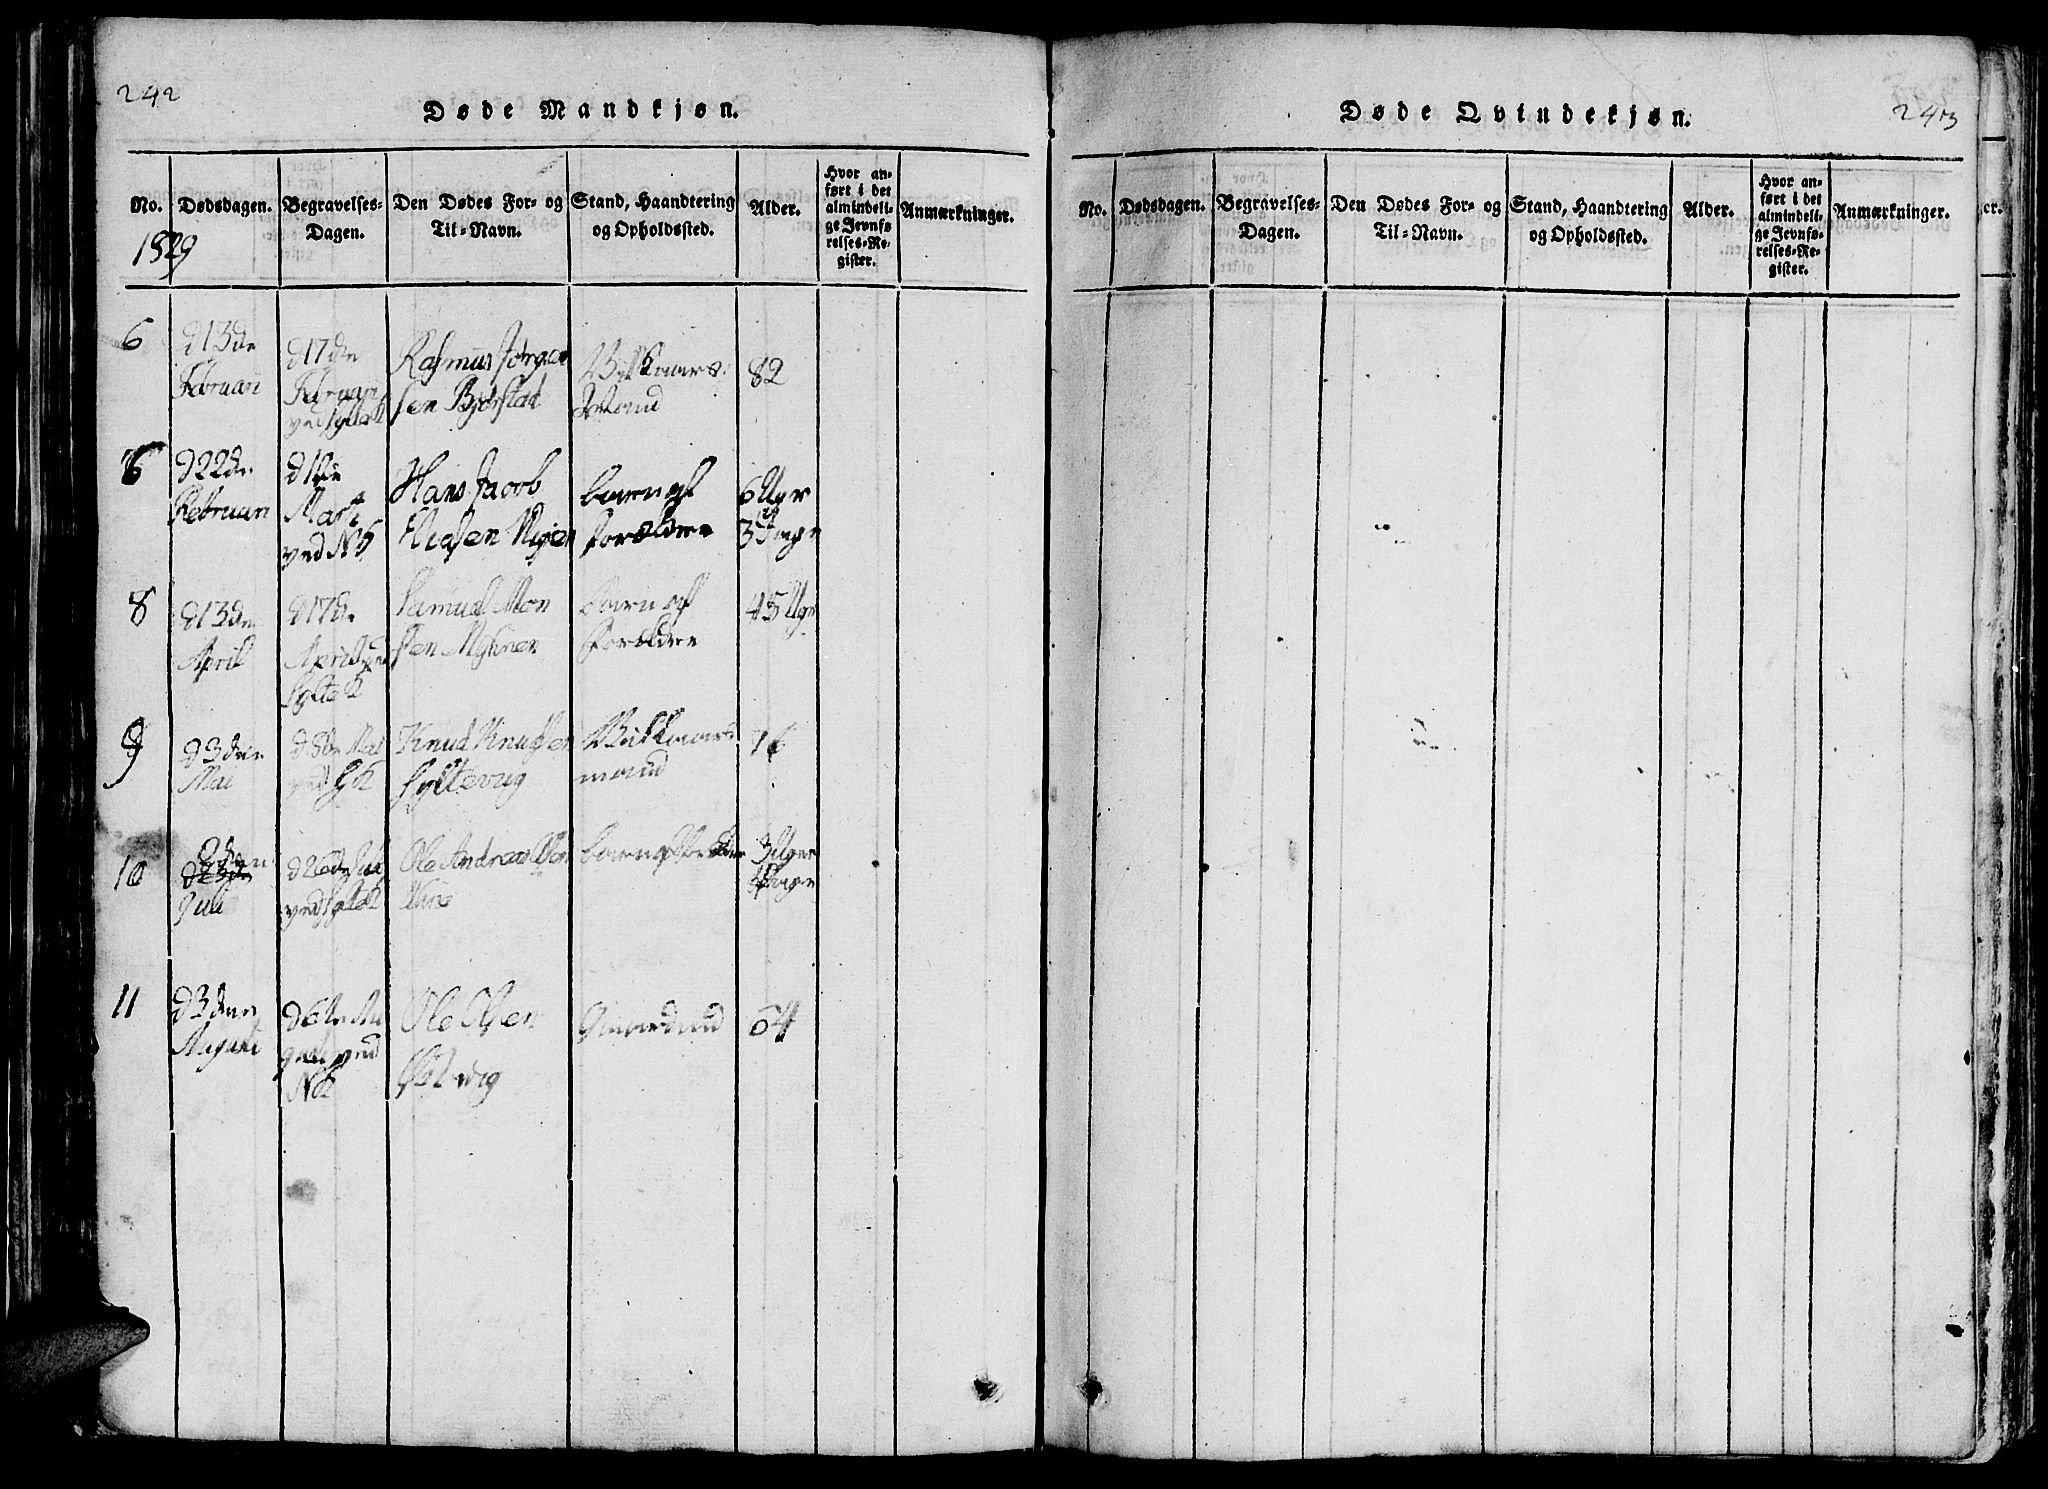 242
Døde Mandkjøn.
No.
Dødsdagen.
Begravelses-
Dagen.
Den Dødes For- og
Til-Navn.
Stand, Haandtering
og Opholdssted.
Alder.
Hvor an-
ført i det
almindeli-
ge Jevnfø-
relses-Re-
gister.
Anmærkninger.
1829
6
d 13de
Februari
d 17de
Februari
ved Sylte K
Rasmus Jørgen
sen Bjørstad
Vilkaars
Mand
82
6
d 22de
Februari
d 1ste
Marti
ved NK
Hans Jacob
barn af
forældre
6 Uger
3 Dage
8
d 13de
April
d 17de
April ved
Sylte K
Samuel Mon
sen
barn af
forældre
45 Uger
9
d 3den
Mai
d 8de Mai
ved SK
Knud Knudsen
Syltevug
Vilkaars
mand
76
10
Juli
d 26de Juli
ved Sylte K
Ole Andreas Olsen
barn af forældre
3 Uger
Dage
11
d 3den
Augusti
d 6te Au
gusti ved
NK
Ole Olsen
Gaardmd
64
243
Døde Qvindekjøn.
No.
Dødsdagen.
Begravelses-
Dagen.
Den Dødes For- og
Til-Navn.
Stand, Haandtering
og Opholdssted.
Alder.
Hvor an-
ført i det
almindeli-
ge Jevnfø-
relses-Re-
gister.
Anmærkninger.
er.